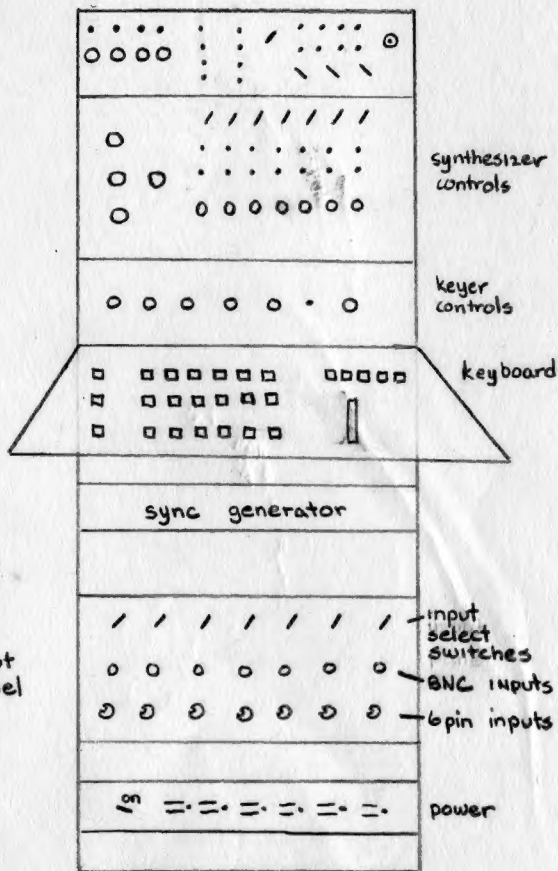 synthesizer
controls
keyer
controls
keyboard
sync generator
input
select
switches
BNC inputs
6pin inputs
el
on
power